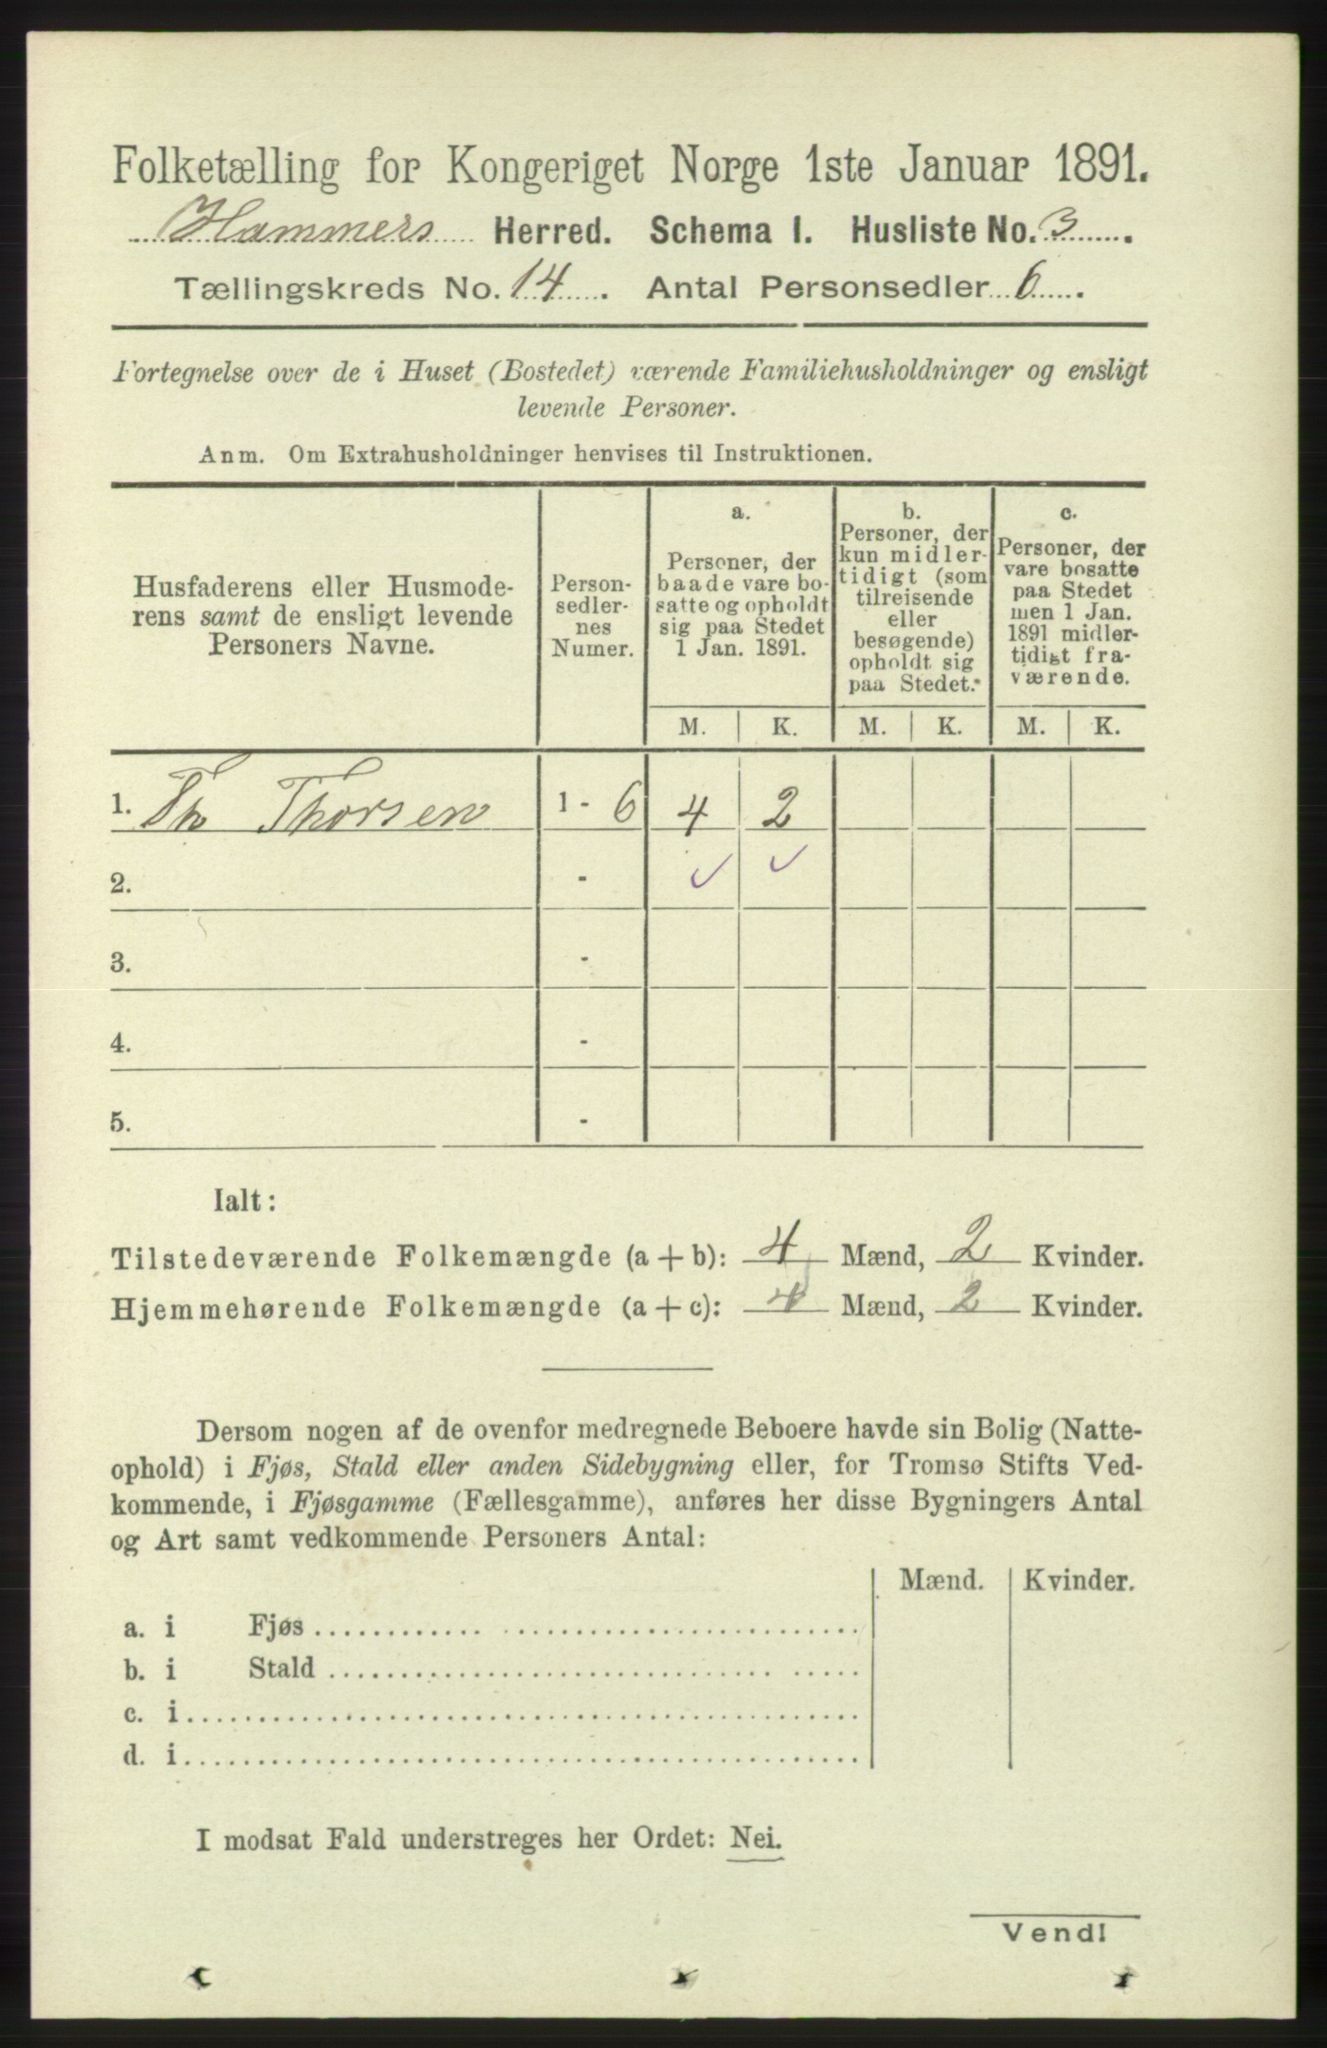 Folketælling for Kongeriget Norge 1ste Januar 1891.
Hammers Herred. Schema I. Husliste No. 3.
Tællingskreds No. 14. Antal Personsedler 6.
Fortegnelse over de i Huset (Bostedet) værende Familiehusholdninger og ensligt
levende Personer.
Anm. Om Extrahusholdninger henvises til Instruktionen.
Husfaderens eller Husmode-
rens samt de ensligt levende
Personers Navne.
Person-
sedler-
nes
Numer.
a.
Personer, der
baade vare bo-
satte og opholdt
sig paa Stedet
1 Jan. 1891.
b.
Personer, der
kun midler-
tidigt (som
tilreisende
eller
besøgende)
opholdt sig
paa Stedet.
c.
Personer, der
vare bosatte
paa Stedet
men 1 Jan.
1891 midler-
tidigt fra-
værende.
M. K. M. K. M. K.
1. Th Thorsen 1 - 6 4 2
2. -
3. -
4. -
5. -
Ialt:
Tilstedeværende Folkemængde (a + b): 4 Mænd, 2 Kvinder.
Hjemmehørende Folkemængde (a + c): 4 Mænd, 2 Kvinder.
Dersom nogen af de ovenfor medregnede Beboere havde sin Bolig (Natte-
ophold) i Fjøs, Stald eller anden Sidebygning eller, for Tromsø Stifts Ved-
kommende, i Fjøsgamme (Fællesgamme), anføres her disse Bygningers Antal
og Art samt vedkommende Personers Antal:
Mænd. Kvinder.
a. i Fjøs
b. i Stald
c. i
d. i
I modsat Fald understreges her Ordet: Nei.
Vend!